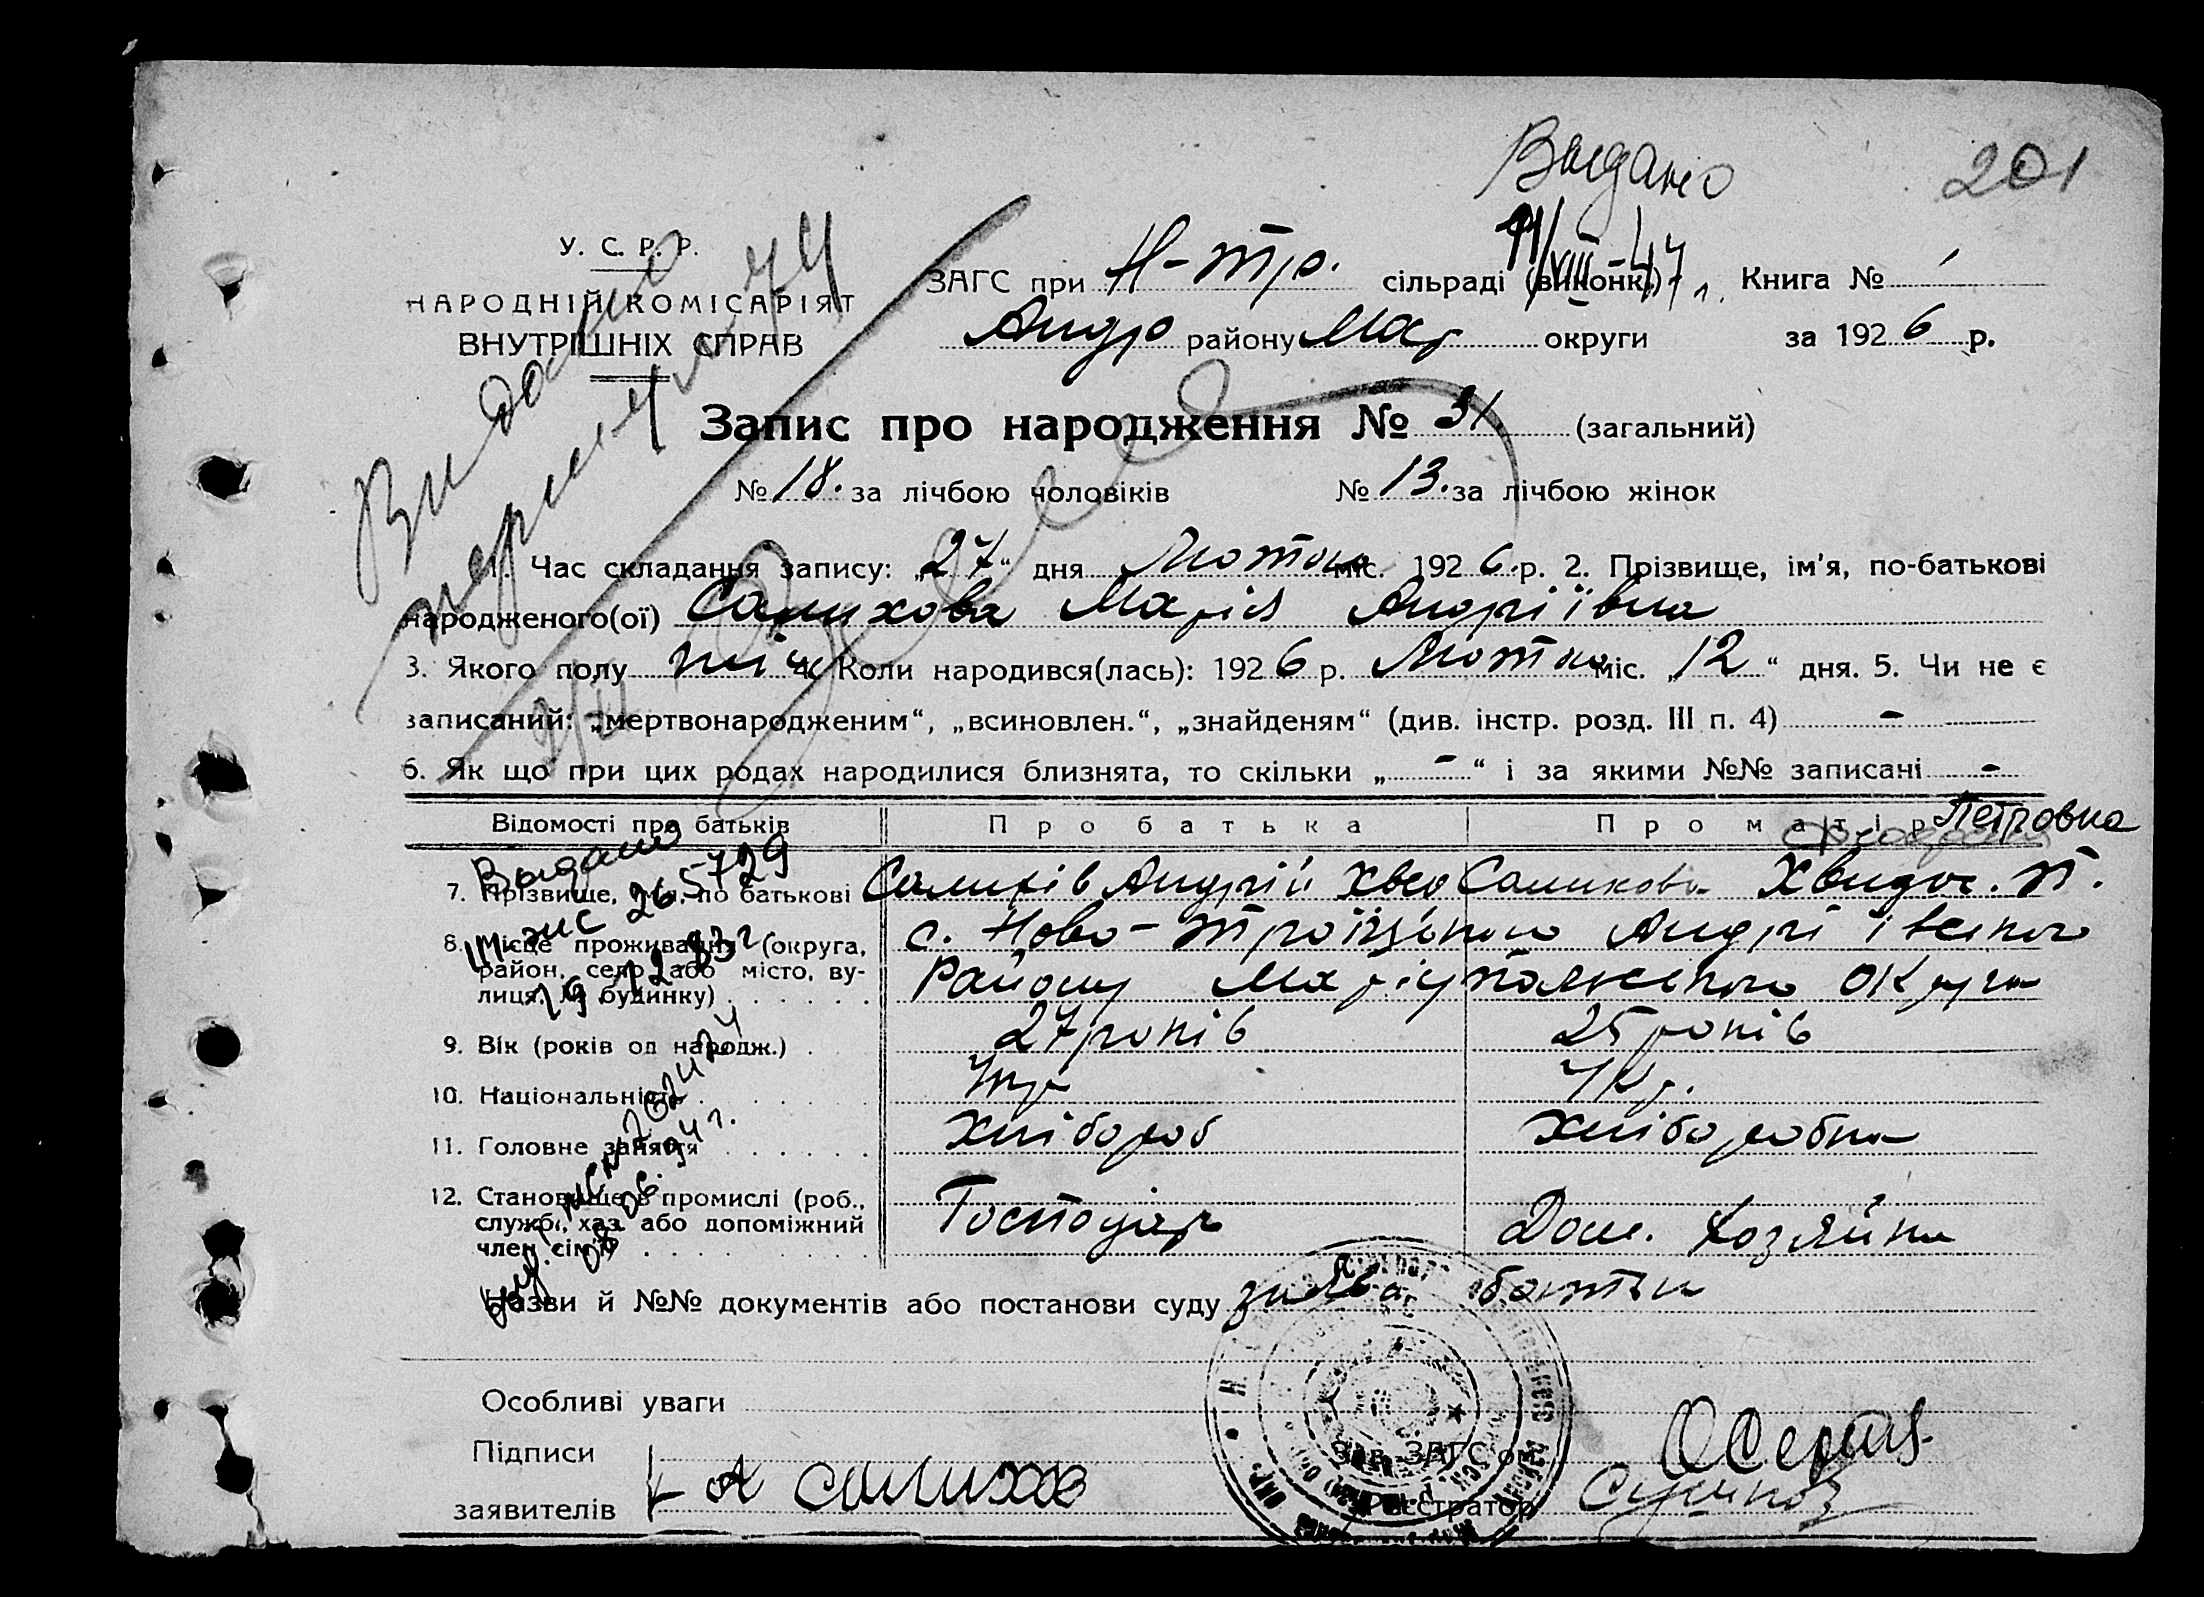 Выдано
201
У. С. Р. Р.
НАРОДНІЙ КОМІСАРІЯТ
ВНУТРІШНІХ СПРАВ
ЗАГС при Н-тр. сільраді (виконк.) Книга №
Андр району Мар округи за 1926 р.
VIII-47 г.
Запис про народження № 31 (загальний)
№ 18. за лічбою чоловіків № 13. за лічбою жінок
1. Час складання запису: „27“ дня Лютого міс. 1926 р. 2. Прізвище, ім'я, по-батькові
народженого(ої) Салихова Марія Андріївна
3. Якого полу жіч 4. Коли народився(лась): 1926 р. Лютого міс. „12“ дня. 5. Чи не є
записаний: „мертвонародженим“, „всиновлен.“, „знайденям“ (див. інстр. розд. III п. 4) -
6. Як що при цих родах народилися близнята, то скільки „ - “ і за якими №№ записані -
Відомості про батьків Про батька Про матір
Петровна
7. Прізвище, ім'я, по батькові Салихів Андрій Хвед Салихова Хвидос. П.
8. Місце проживання (округа, район, село або місто, вулиця, № будинку) с. Ново-Троїцького Андріївського
Району Маріупольського Округи
9. Вік (років од народж.) 27 років 25 років
10. Національність Укр Укр.
11. Головне заняття Хлібороб Хліборобка
12. Становище в промислі (роб., служб., хаз. або допоміжний член сім'ї) Господар Дом. Хозяйка
Выдано
265729
19.12.83 г.
Назви й №№ документів або постанови суду заява батька
Особливі уваги
Підписи
заявителів А Салихов
Зав. ЗАГС'ом
Реєстратор